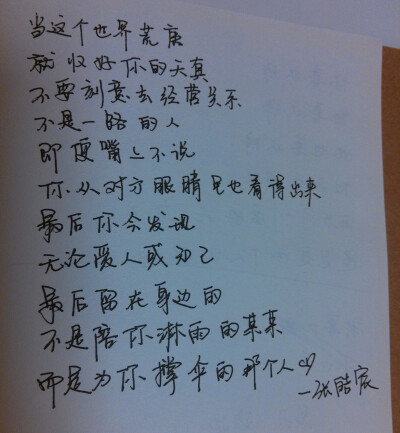 当这个世界荒唐
就收好你的天真
不要刻意去经营关系
不是一路的人
即便嘴上不说
你从对方眼睛里也看得出来
最后你会发现
无论爱人或知己
最后留在身边的
不是陪你淋雨的某某
而是为你撑伞的那个人
—张皓宸